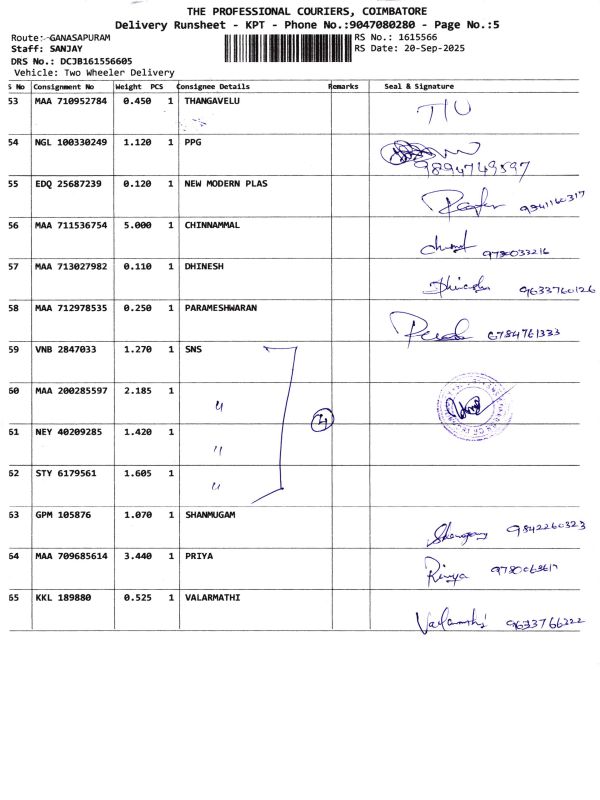 THE PROFESSIONAL COURIERS, COIMBATORE
Delivery Runsheet - KPT - Phone No.:9047080280 - Page No.:5
Route: GANASAPURAM
RS No.: 1615566
Staff: SANJAY
RS Date: 20-Sep-2025
DRS No.: DCJB161556605
Vehicle: Two Wheeler Delivery
S No Consignment No Weight PCS Consignee Details Remarks Seal & Signature
53 MAA 710952784 0.450 1 THANGAVELU T/U
54 NGL 100330249 1.120 1 PPG 9894749597
55 EDQ 25687239 0.120 1 NEW MODERN PLAS 9841160317
56 MAA 711536754 5.000 1 CHINNAMMAL 9780033216
57 MAA 713027982 0.110 1 DHINESH 9633760126
58 MAA 712978535 0.250 1 PARAMESHWARAN 6784761333
59 VNB 2847033 1.270 1 SNS
60 MAA 200285597 2.185 1 "
4
61 NEY 40209285 1.420 1 "
62 STY 6179561 1.605 1 "
63 GPM 105876 1.070 1 SHANMUGAM 9842260323
64 MAA 709685614 3.440 1 PRIYA Priya
65 KKL 189880 0.525 1 VALARMATHI Valarmathi 9633766222